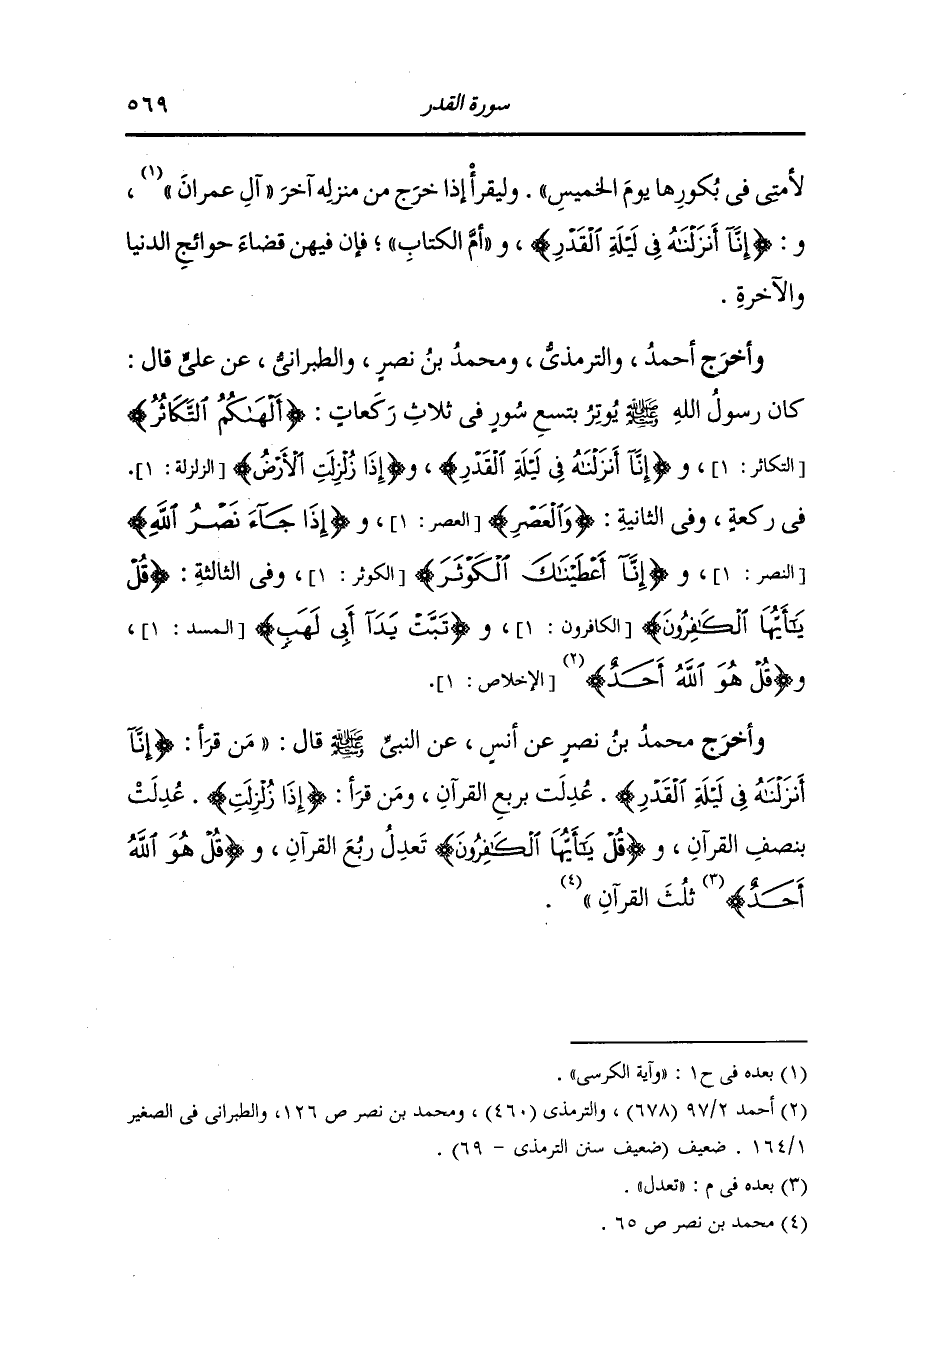 سورة القدر ٥٦٩
لأمتى فى بُكورِها يومَ الخميسِ» . وليقرأْ إذا خرَج من منزلِه آخرَ « آلِ عمرانَ »(١) ،
و : ﴿إِنَّآ أَنزَلْنَٰهُ فِى لَيْلَةِ ٱلْقَدْرِ﴾ ، و «أمَّ الكتابِ» ؛ فإن فيهن قضاءَ حوائجِ الدنيا
والآخرةِ .
وأخرَج أحمدُ ، والترمذىُّ ، ومحمدُ بنُ نصرٍ ، والطبرانىُّ ، عن علىٍّ قال :
كان رسولُ اللهِ ﷺ يُوتِرُ بتسعِ سُورٍ فى ثلاثِ رَكَعاتٍ : ﴿أَلْهَىٰكُمُ ٱلتَّكَاثُرُ﴾
[التكاثر : ١] ، و ﴿إِنَّآ أَنزَلْنَٰهُ فِى لَيْلَةِ ٱلْقَدْرِ﴾ ، و﴿إِذَا زُلْزِلَتِ ٱلْأَرْضُ﴾ [الزلزلة : ١].
فى ركعةٍ ، وفى الثانيةِ : ﴿وَٱلْعَصْرِ﴾ [العصر : ١] ، و ﴿إِذَا جَآءَ نَصْرُ ٱللَّهِ﴾
[النصر : ١] ، و ﴿إِنَّآ أَعْطَيْنَٰكَ ٱلْكَوْثَرَ﴾ [الكوثر : ١] ، وفى الثالثةِ : ﴿قُلْ
يَٰٓأَيُّهَا ٱلْكَٰفِرُونَ﴾ [الكافرون : ١] ، و ﴿تَبَّتْ يَدَآ أَبِى لَهَبٍ﴾ [المسد : ١] ،
و﴿قُلْ هُوَ ٱللَّهُ أَحَدٌ﴾(٢) [الإخلاص : ١].
وأخرَج محمدُ بنُ نصرٍ عن أنسٍ ، عن النبىِّ ﷺ قال : « مَن قرَأ : ﴿إِنَّآ
أَنزَلْنَٰهُ فِى لَيْلَةِ ٱلْقَدْرِ﴾ . عُدِلَت بربعِ القرآنِ ، ومَن قرَأ : ﴿إِذَا زُلْزِلَتِ﴾ . عُدِلَتْ
بنصفِ القرآنِ ، و ﴿قُلْ يَٰٓأَيُّهَا ٱلْكَٰفِرُونَ﴾ تَعدِلُ ربُعَ القرآنِ ، و ﴿قُلْ هُوَ ٱللَّهُ
أَحَدٌ﴾(٣) ثلُثَ القرآنِ »(٤) .
(١) بعده فى ح١ : «وآية الكرسى» .
(٢) أحمد ٩٧/٢ (٦٧٨) ، والترمذى (٤٦٠) ، ومحمد بن نصر ص ١٢٦، والطبرانى فى الصغير
١٦٤/١ . ضعيف (ضعيف سنن الترمذى - ٦٩) .
(٣) بعده فى م : «تعدل» .
(٤) محمد بن نصر ص ٦٥ .